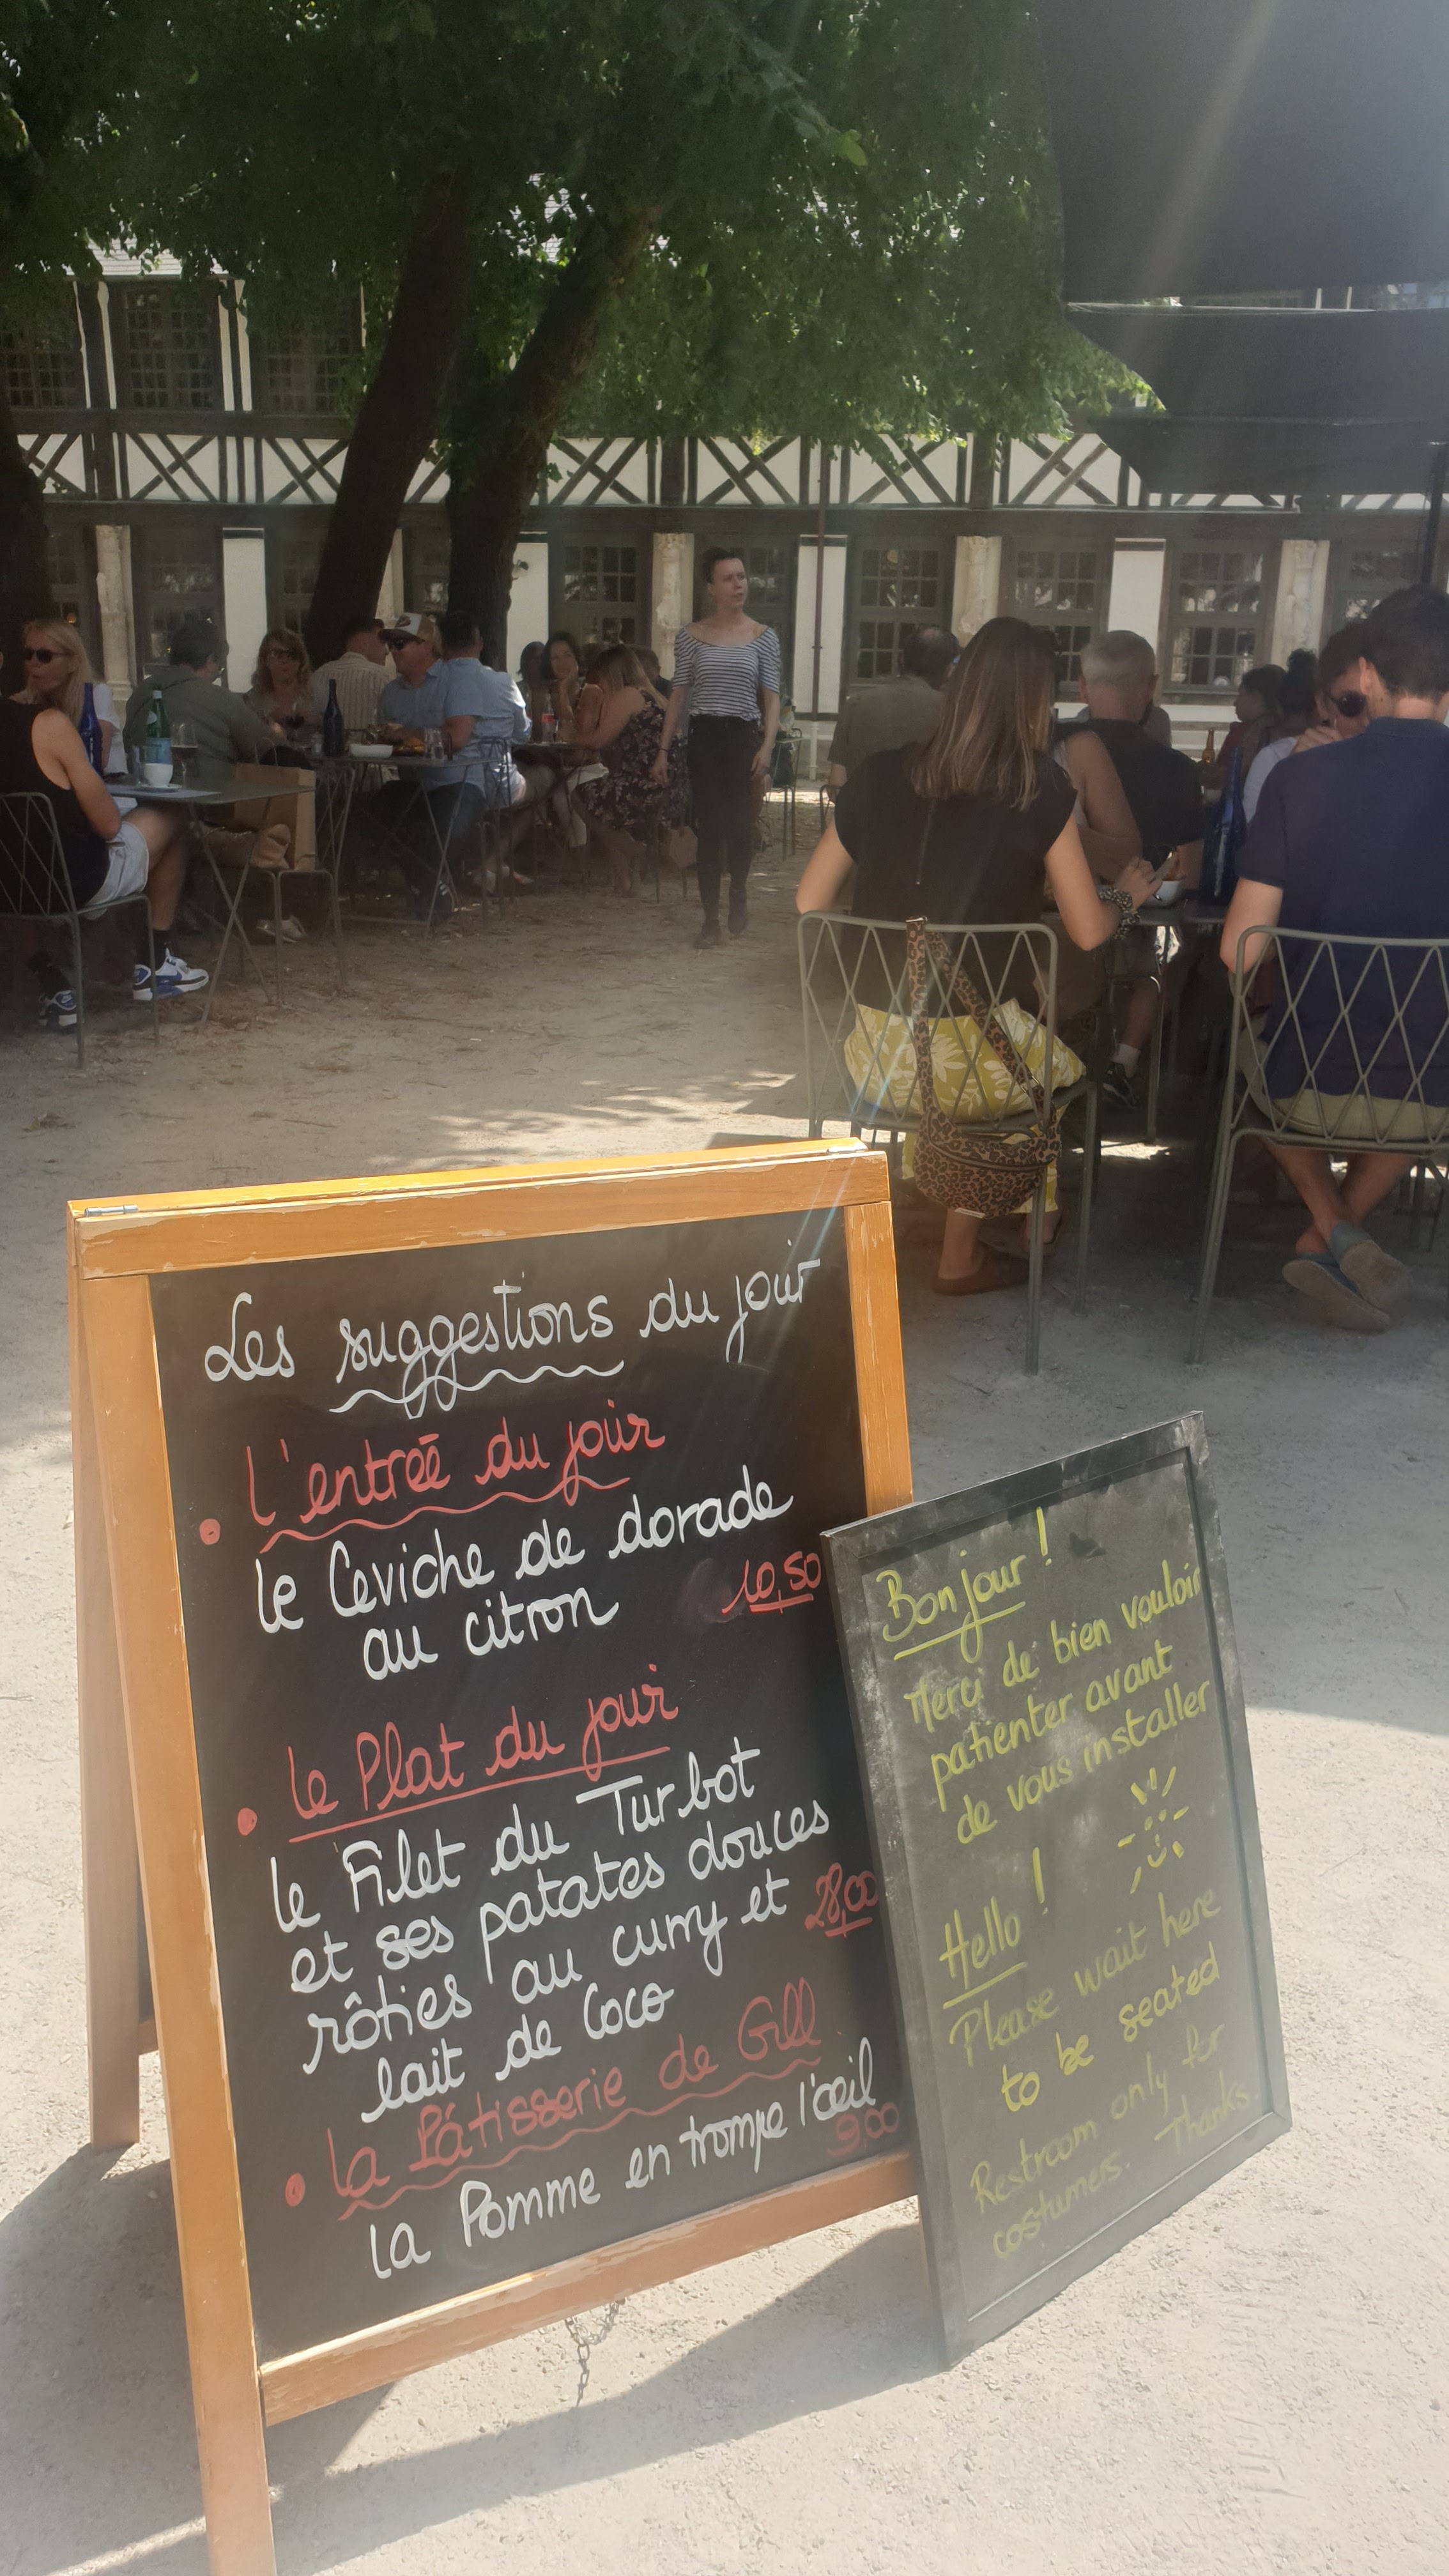 Les suggestions du jour
• l'entrée du jour
le Ceviche de dorade
au citron 10,50
• le Plat du jour
le Filet du Turbot
et ses patates douces
rôties au curry et 28,00
lait de Coco
• la Pâtisserie de Gill
la Pomme en trompe l'œil
9,00
Bonjour !
Merci de bien vouloir
patienter avant
de vous installer
Hello !
Please wait here
to be seated
Restroom only for
costumers. Thanks